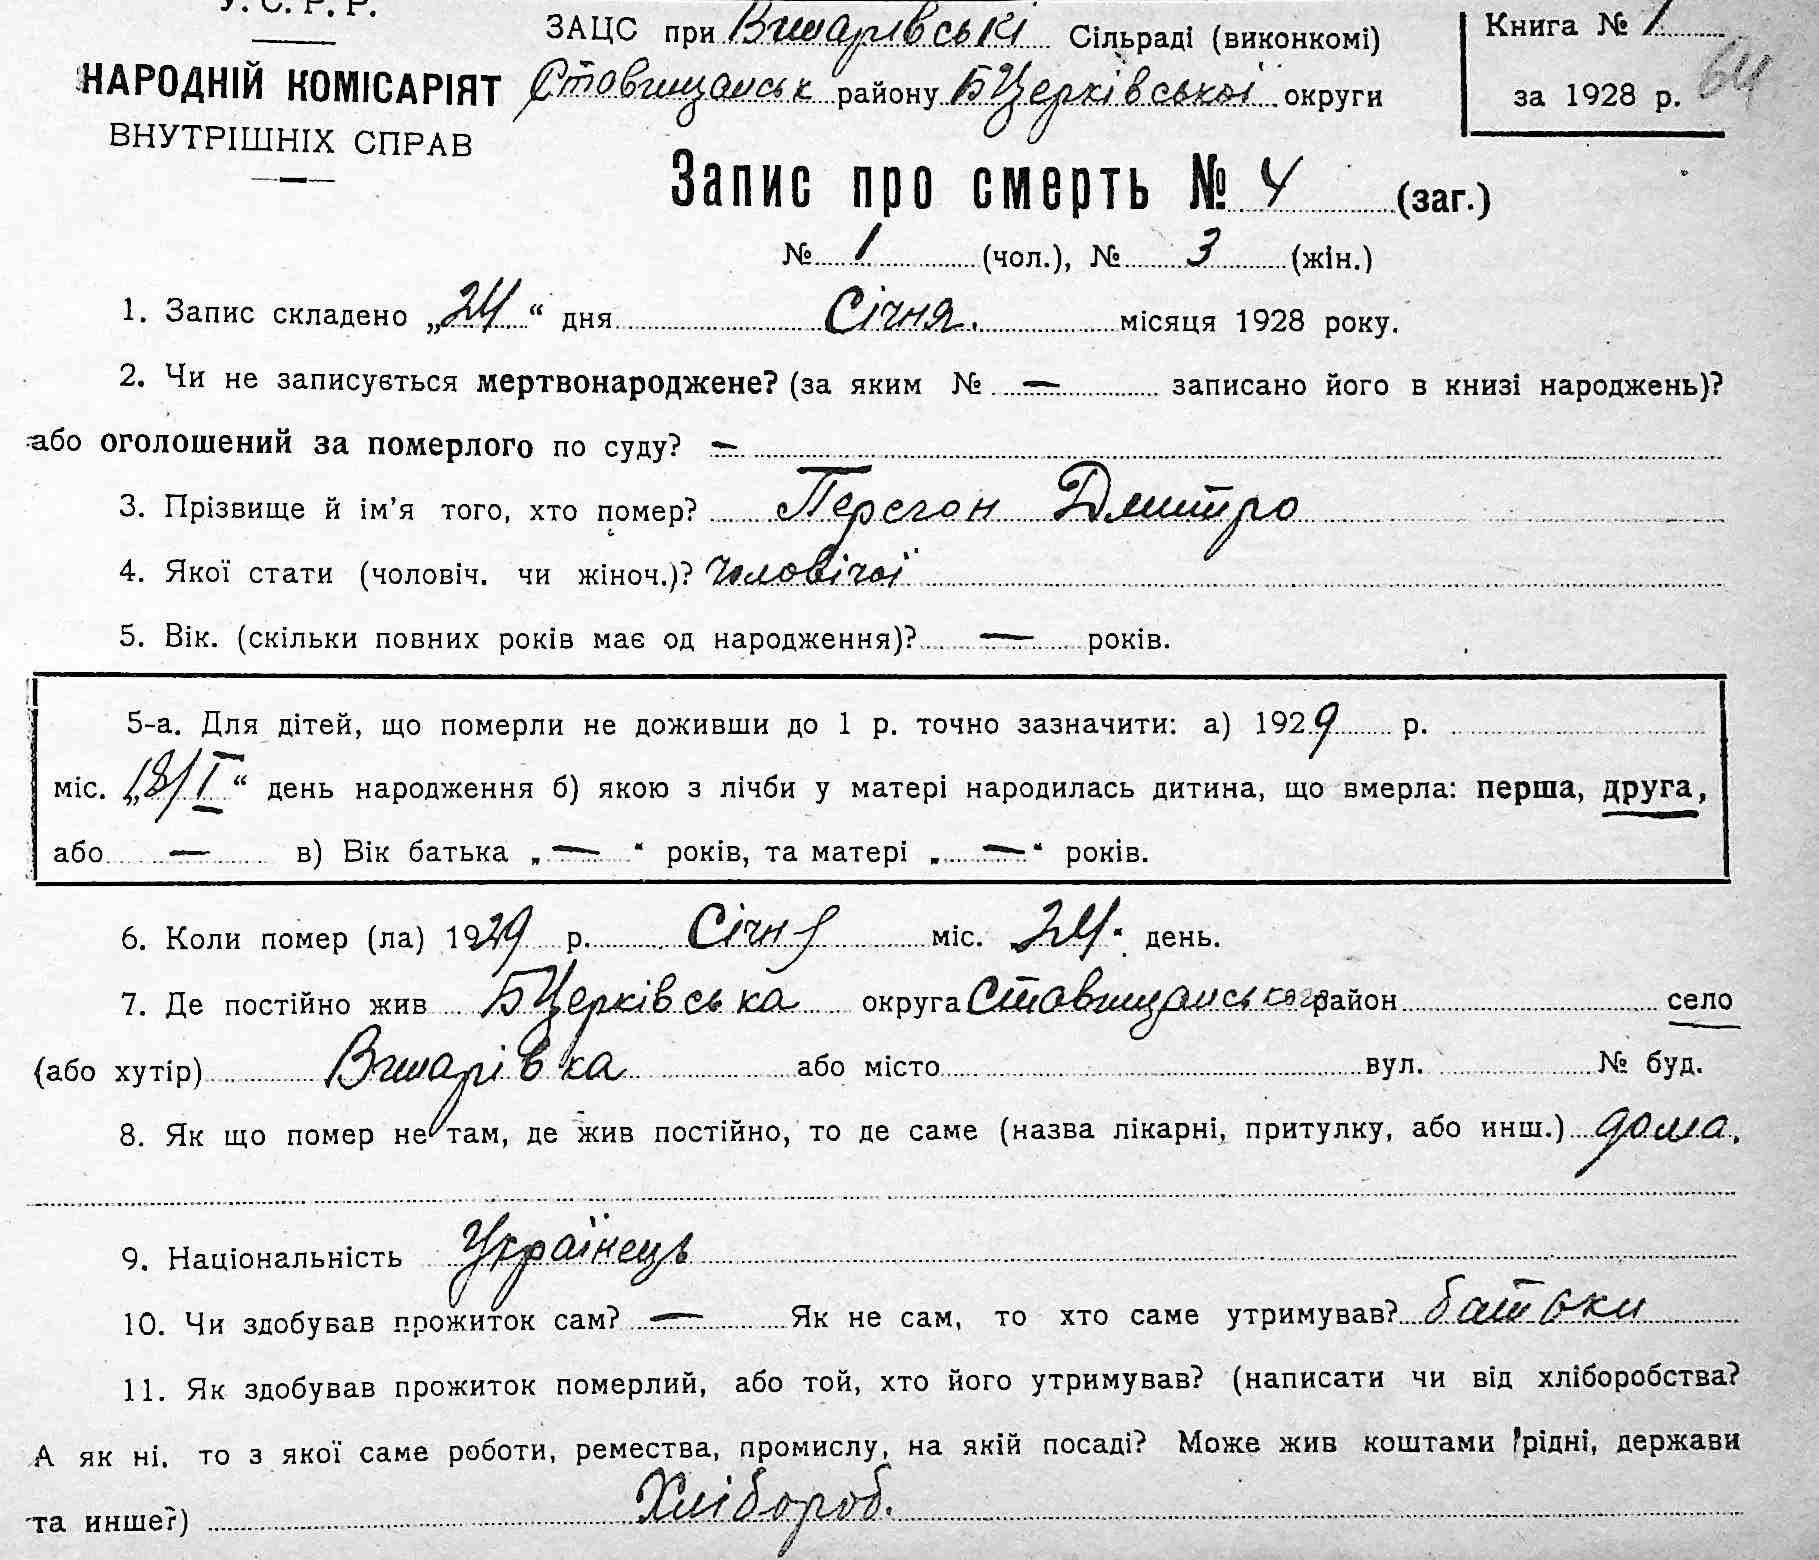 У. С. Р. Р.
НАРОДНІЙ КОМІСАРІЯТ
ВНУТРІШНІХ СПРАВ
ЗАЦС при Вишарівські Сільраді (виконкомі)
Ставищанськ району БЦерківської округи
Книга № 1
за 1928 р.
64
Запис про смерть № 4 (заг.)
№ 1 (чол.), № 3 (жін.)
1. Запис складено „24“ дня Січня. місяця 1928 року.
2. Чи не записується мертвонароджене? (за яким № — записано його в книзі народжень)?
або оголошений за померлого по суду? —
3. Прізвище й ім’я того, хто помер? Перегон Дмитро
4. Якої стати (чоловіч. чи жіноч.)? Чоловічої
5. Вік. (скільки повних років має од народження)? — років.
5-а. Для дітей, що померли не доживши до 1 р. точно зазначити: а) 1929 р.
міс. „18/I“ день народження б) якою з лічби у матері народилась дитина, що вмерла: перша, друга,
або — в) Вік батька „—“ років, та матері „—“ років.
6. Коли помер (ла) 1929 р. Січня міс. 24. день.
7. Де постійно жив БЦерківська округа Ставищанського район село
(або хутір) Вишарівка або місто вул. № буд.
8. Як що помер не там, де жив постійно, то де саме (назва лікарні, притулку, або инш.) дома.
9. Національність Українець
10. Чи здобував прожиток сам? — Як не сам, то хто саме утримував? батьки
11. Як здобував прожиток померлий, або той, хто його утримував? (написати чи від хліборобства?
А як ні, то з якої саме роботи, ремества, промислу, на якій посаді? Може жив коштами рідні, держави
та инше?) Хлібороб.